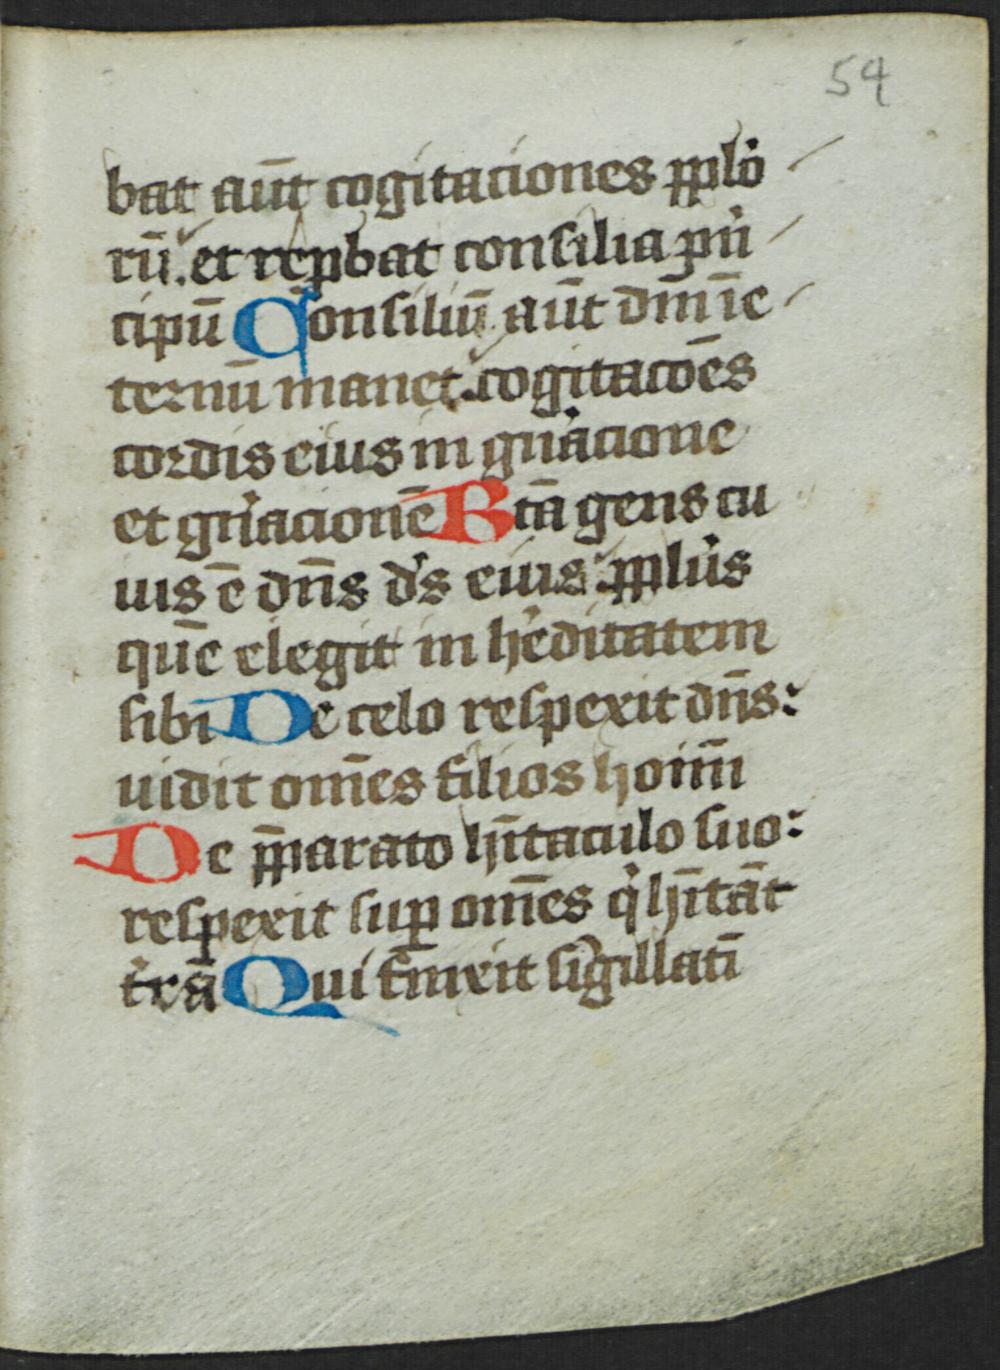 54
bat aūt cogitaciones pplo
rū. et rep̱bat consilia pn
cipū Consiliū aūt dm̄ ie
ternū manet. cogitacōēs
cordis eius in gn̄acione
et gn̄acionē Btā gens cu
ius ē dn̄s ds eius pplus
quē elegit in heditatem
sibi De celo respexit dn̄s:
uidit om̄es filios hoim̄
De pp̄arato hītaculo suo:
respexit suꝑ om̄es q hītāt
trā Qui finxit sigillatī